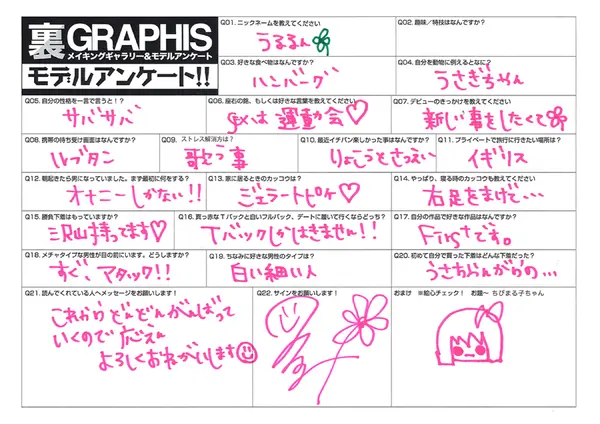 裏GRAPHIS
メイキングギャラリー&モデルアンケート
モデルアンケート!!
Q01. ニックネームを教えてください
うるるん
Q02. 趣味／特技はなんですか？
Q03. 好きな食べ物はなんですか？
ハンバーグ
Q04. 自分を動物に例えるとなに？
うさぎちゃん
Q05. 自分の性格を一言で言うと！？
サバサバ
Q06. 座右の銘、もしくは好きな言葉を教えてください
SEXは運動会♡
Q07. デビューのきっかけを教えてください
新しい事をしたくて
Q08. 携帯の待ち受け画面はなんですか？
ルブタン
Q09. ストレス解消方は？
歌う事
Q10. 最近イチバン楽しかった事はなんですか？
りょこうとさつえい
Q11. プライベートで旅行に行きたい場所は？
イギリス
Q12. 朝起きたら男になっていました。まず最初に何をする？
オナニーしかない!!
Q13. 家に居るときのカッコウは？
ジェラートピケ♡
Q14. やっぱり、寝る時のカッコウも教えてください
右足をまげて…
Q15. 勝負下着はもっていますか？
沢山持ってます♡
Q16. 真っ赤なTバックと白いフルバック、デートに履いて行くならどっち？
Tバックしかはきません!!
Q17. 自分の作品で好きな作品はなんですか？
Firstです。
Q18. メチャタイプな男性が目の前にいます。どうしますか？
すぐ、アタック!!
Q19. ちなみに好きな男性のタイプは？
白い細い人
Q20. 初めて自分で買った下着はどんな下着だった？
うさちゃんがらの…
Q21. 読んでくれている人へメッセージをお願いします！
これからどんどんがんばって
いくので応えん
よろしくおねがいします
Q22. サインをお願いします！
おまけ ※絵心チェック！ お題〜 ちびまる子ちゃん